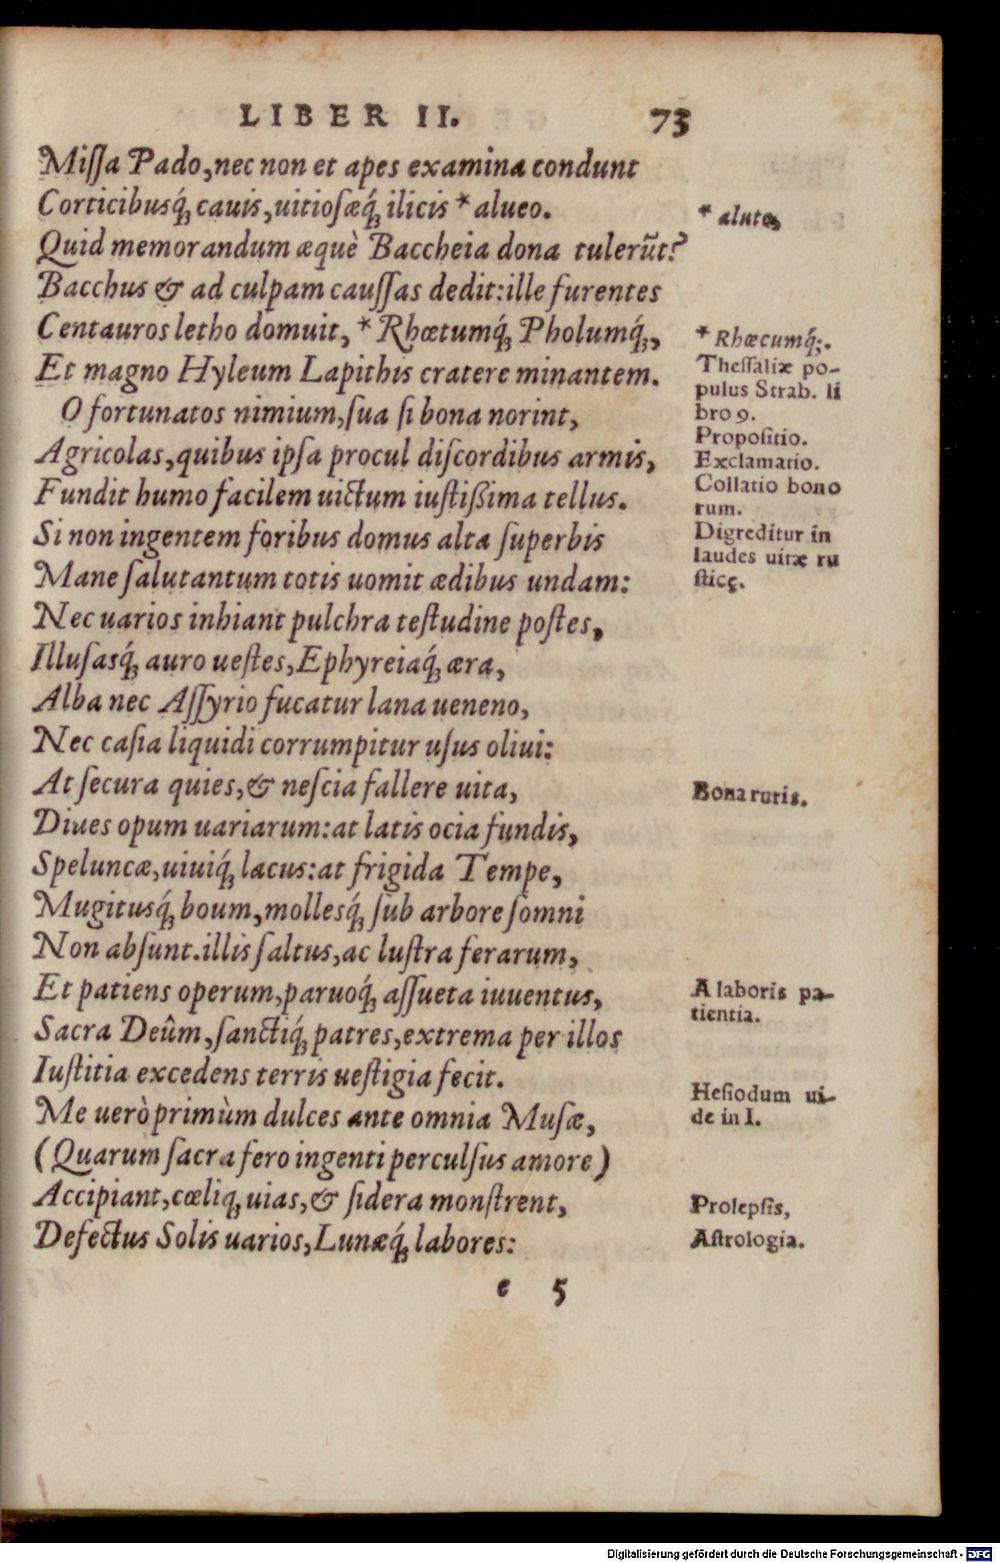 LIBER II. 73
Miſſa Pado, nec non et apes examina condunt
Corticibusq́ꝫ cauis, uitioſæq́ꝫ ilicis * alueo.
* aluto,
Quid memorandum æquè Baccheia dona tulerũt?
Bacchus & ad culpam cauſſas dedit: ille furentes
Centauros letho domuit, * Rhœtumq́ꝫ Pholumq́ꝫ,
* Rhœcumq́;.
Et magno Hyleum Lapithis cratere minantem.
Theſſaliæ po-
pulus Strab. li
bro 9.
O fortunatos nimium, ſua ſi bona norint,
Propoſitio.
Agricolas, quibus ipſa procul diſcordibus armis,
Exclamatio.
Fundit humo facilem uictum iuſtißima tellus.
Collatio bono
rum.
Si non ingentem foribus domus alta ſuperbis
Digreditur in
laudes uitæ ru
ſticę.
Mane ſalutantum totis uomit ædibus undam:
Nec uarios inhiant pulchra teſtudine poſtes,
Illuſasq́ꝫ auro ueſtes, Ephyreiaq́ꝫ æra,
Alba nec Aſſyrio fucatur lana ueneno,
Nec caſia liquidi corrumpitur uſus oliui:
At ſecura quies, & neſcia fallere uita,
Bona ruris.
Diues opum uariarum: at latis ocia fundis,
Speluncæ, uiuiq́ꝫ lacus: at frigida Tempe,
Mugitusq́ꝫ boum, mollesq́ꝫ ſub arbore ſomni
Non abſunt. illis ſaltus, ac luſtra ferarum,
Et patiens operum, paruoq́ꝫ aſſueta iuuentus,
A laboris pa-
tientia.
Sacra Deûm, ſanctiq́ꝫ patres, extrema per illos
Iuſtitia excedens terris ueſtigia fecit.
Heſiodum ui-
de in I.
Me uerò primùm dulces ante omnia Muſæ,
(Quarum ſacra fero ingenti perculſus amore)
Accipiant, cœliqꝫ uias, & ſidera monſtrent,
Prolepſis,
Defectus Solis uarios, Lunæq́ꝫ labores:
Aſtrologia.
e 5
Digitalisierung gefördert durch die Deutsche Forschungsgemeinschaft - DFG